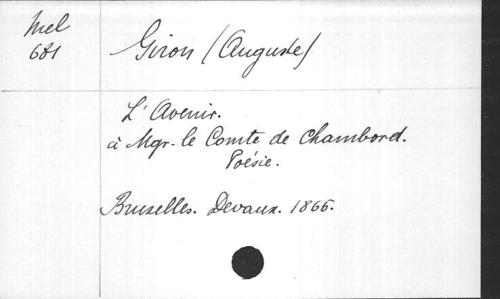 Mel
681
Giron (Auguste)
L'Avenir.
à Mgr. le Comte de Chambord.
Poésie.
Bruxelles. Devaux. 1866.